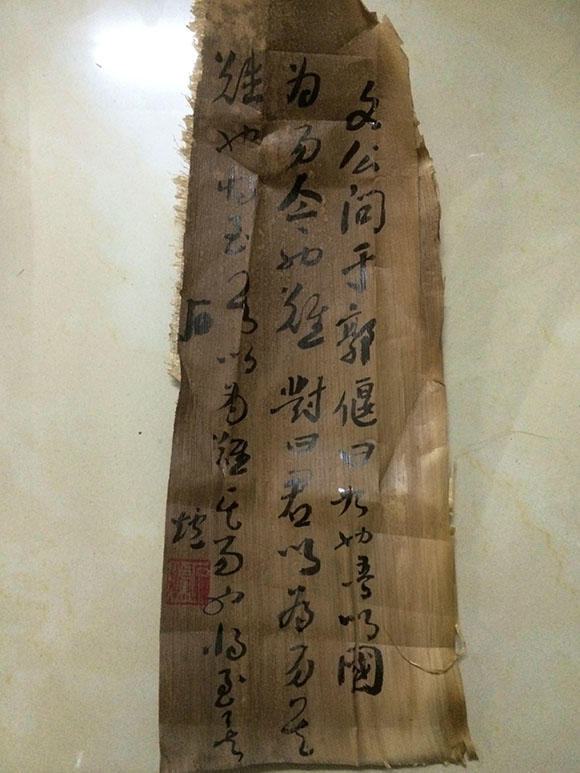 文公问于郭偃曰始也吾以國
为易今也難對曰君以為易其
難也将至君以為難其易也将至
石爐